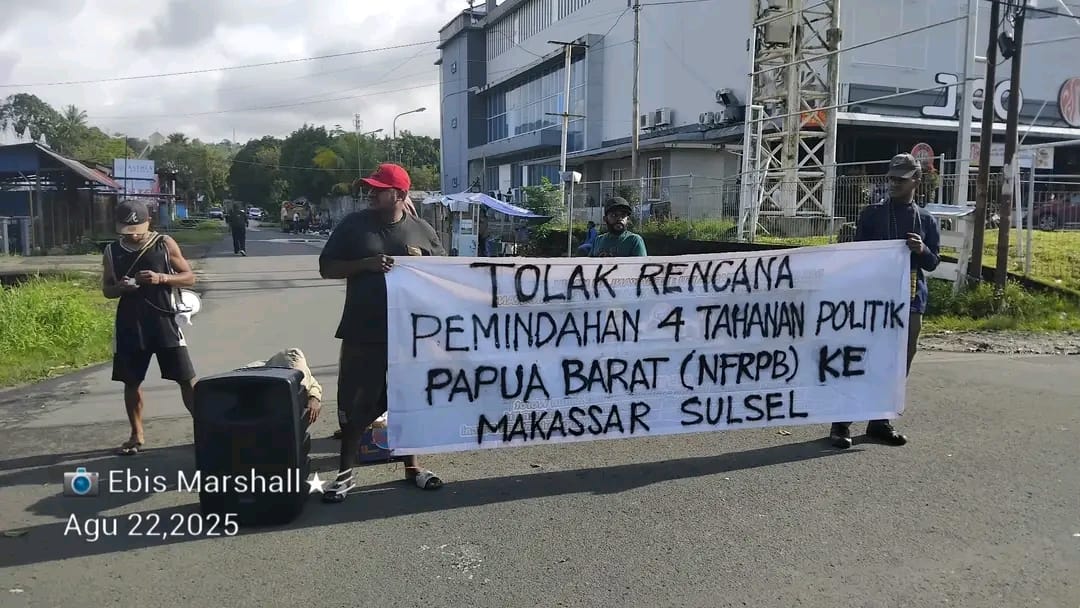 TOLAK RENCANA
PEMINDAHAN 4 TAHANAN POLITIK
PAPUA BARAT (NFRPB) KE
MAKASSAR SULSEL
Jco
Ebis Marshall★
Agu 22,2025